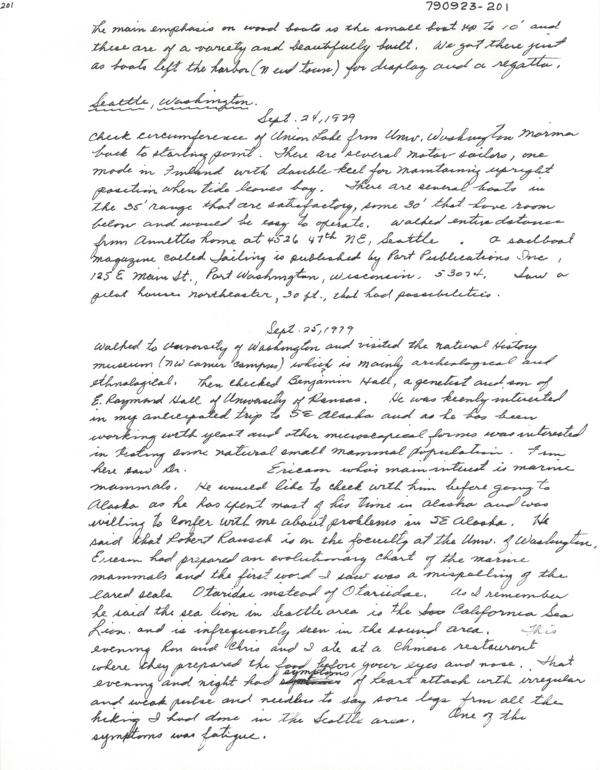 201
790923-201
The main emphasis on wood boats is the small boat up to 10' and
these are of a variety and beautifully built. We got there just
as boats left the harbor (N end town) for display and a regatta.
Seattle, Washington.
Sept. 24, 1979
Check circumference of Union Lake from Univ. Washington Marina
back to starting point. There are several motor sailors, one
made in Finland with double keel for maintaining upright
position when tide leaves bay. There are several boats in
the 35' range that are satisfactory, some 30' that have room
below and would be easy to operate. Walked entire distance
from Annettes home at 4526 47th NE, Seattle. A sailboat
magazine called Sailing is published by Port Publications Inc,
125 E. Main St., Port Washington, Wisconsin. 53074. Saw a
pilot house northeaster, 30 ft., that had possibilities.
Sept. 25, 1979
Walked to University of Washington and visited the Natural History
museum (NW corner campus) which is mainly archeological and
ethnological. Then checked Benjamin Hall, a genetist and son of
E. Raymond Hall of University of Kansas. He was keenly interested
in my anticipated trip to SE Alaska and as he has been
working with yeast and other microscopical forms was interested
in testing some natural small mammal population. From
here saw Dr. Ericson who's main interest is marine
mammals. He would like to check with him before going to
Alaska as he has spent most of his time in Alaska and was
willing to confer with me about problems in SE Alaska. He
said that Robert Rausch is on the faculty at the Univ. of Washington.
Ericson had prepared an evolutionary chart of the marine
mammals and the first word I saw was a mispelling of the
eared seals Otaridae instead of Otariidae. As I remember
he said the sea lion in Seattle area is the California Sea
Lion. and is infrequently seen in the sound area. This
evening Ron and Chris and I ate at a Chinese restaurant
where they prepared the food before your eyes and nose. That
evening and night had symptoms of heart attack with irregular
and weak pulse and needless to say sore legs from all the
hiking I had done in the Seattle area. One of the
symptoms was fatigue.